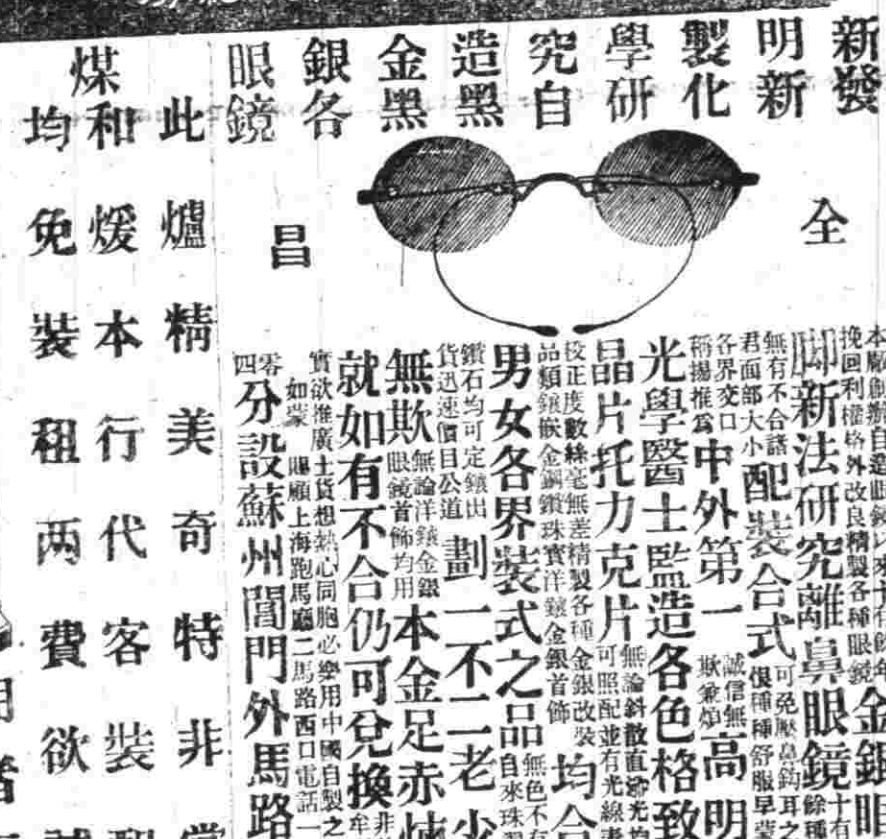 新發
明新
製化
學研
究自
造黑
金黑
銀各
眼鏡
全
昌
挽回利權格外改良精製各種眼鏡
金銀眼
脚新法研究離鼻眼鏡
無有不合諸
君面部大小
配裝合式
可免壓鼻鈎耳之
恨種種舒服早
各界交口
稱揚推爲
中外第一
誠信無
欺兼煩
高明
光學醫士監造各色格致
晶片托力克片
無論斜散直
可照配並有光線
校正度數絲毫無差精製各種金銀改裝
品類鑲嵌金鋼鑽珠寶洋鑲金銀首飾
均合
男女各界裝式之品
無色不
自來珠
鑽石均可定鑲出
貨迅速價目公道
劃一不二老少
無欺
無論洋鑲金銀
眼鏡首飾均用
本金足赤
就如有不合仍可兌換
實欲推廣土貨想熱心同胞必樂用中國自製之
如蒙賜顧上海跑馬廳二馬路西口電話一
零
四
分設蘇州閶門外馬路
此爐精美奇特非常
煤和煖本行代客裝
均免裝租两費欲